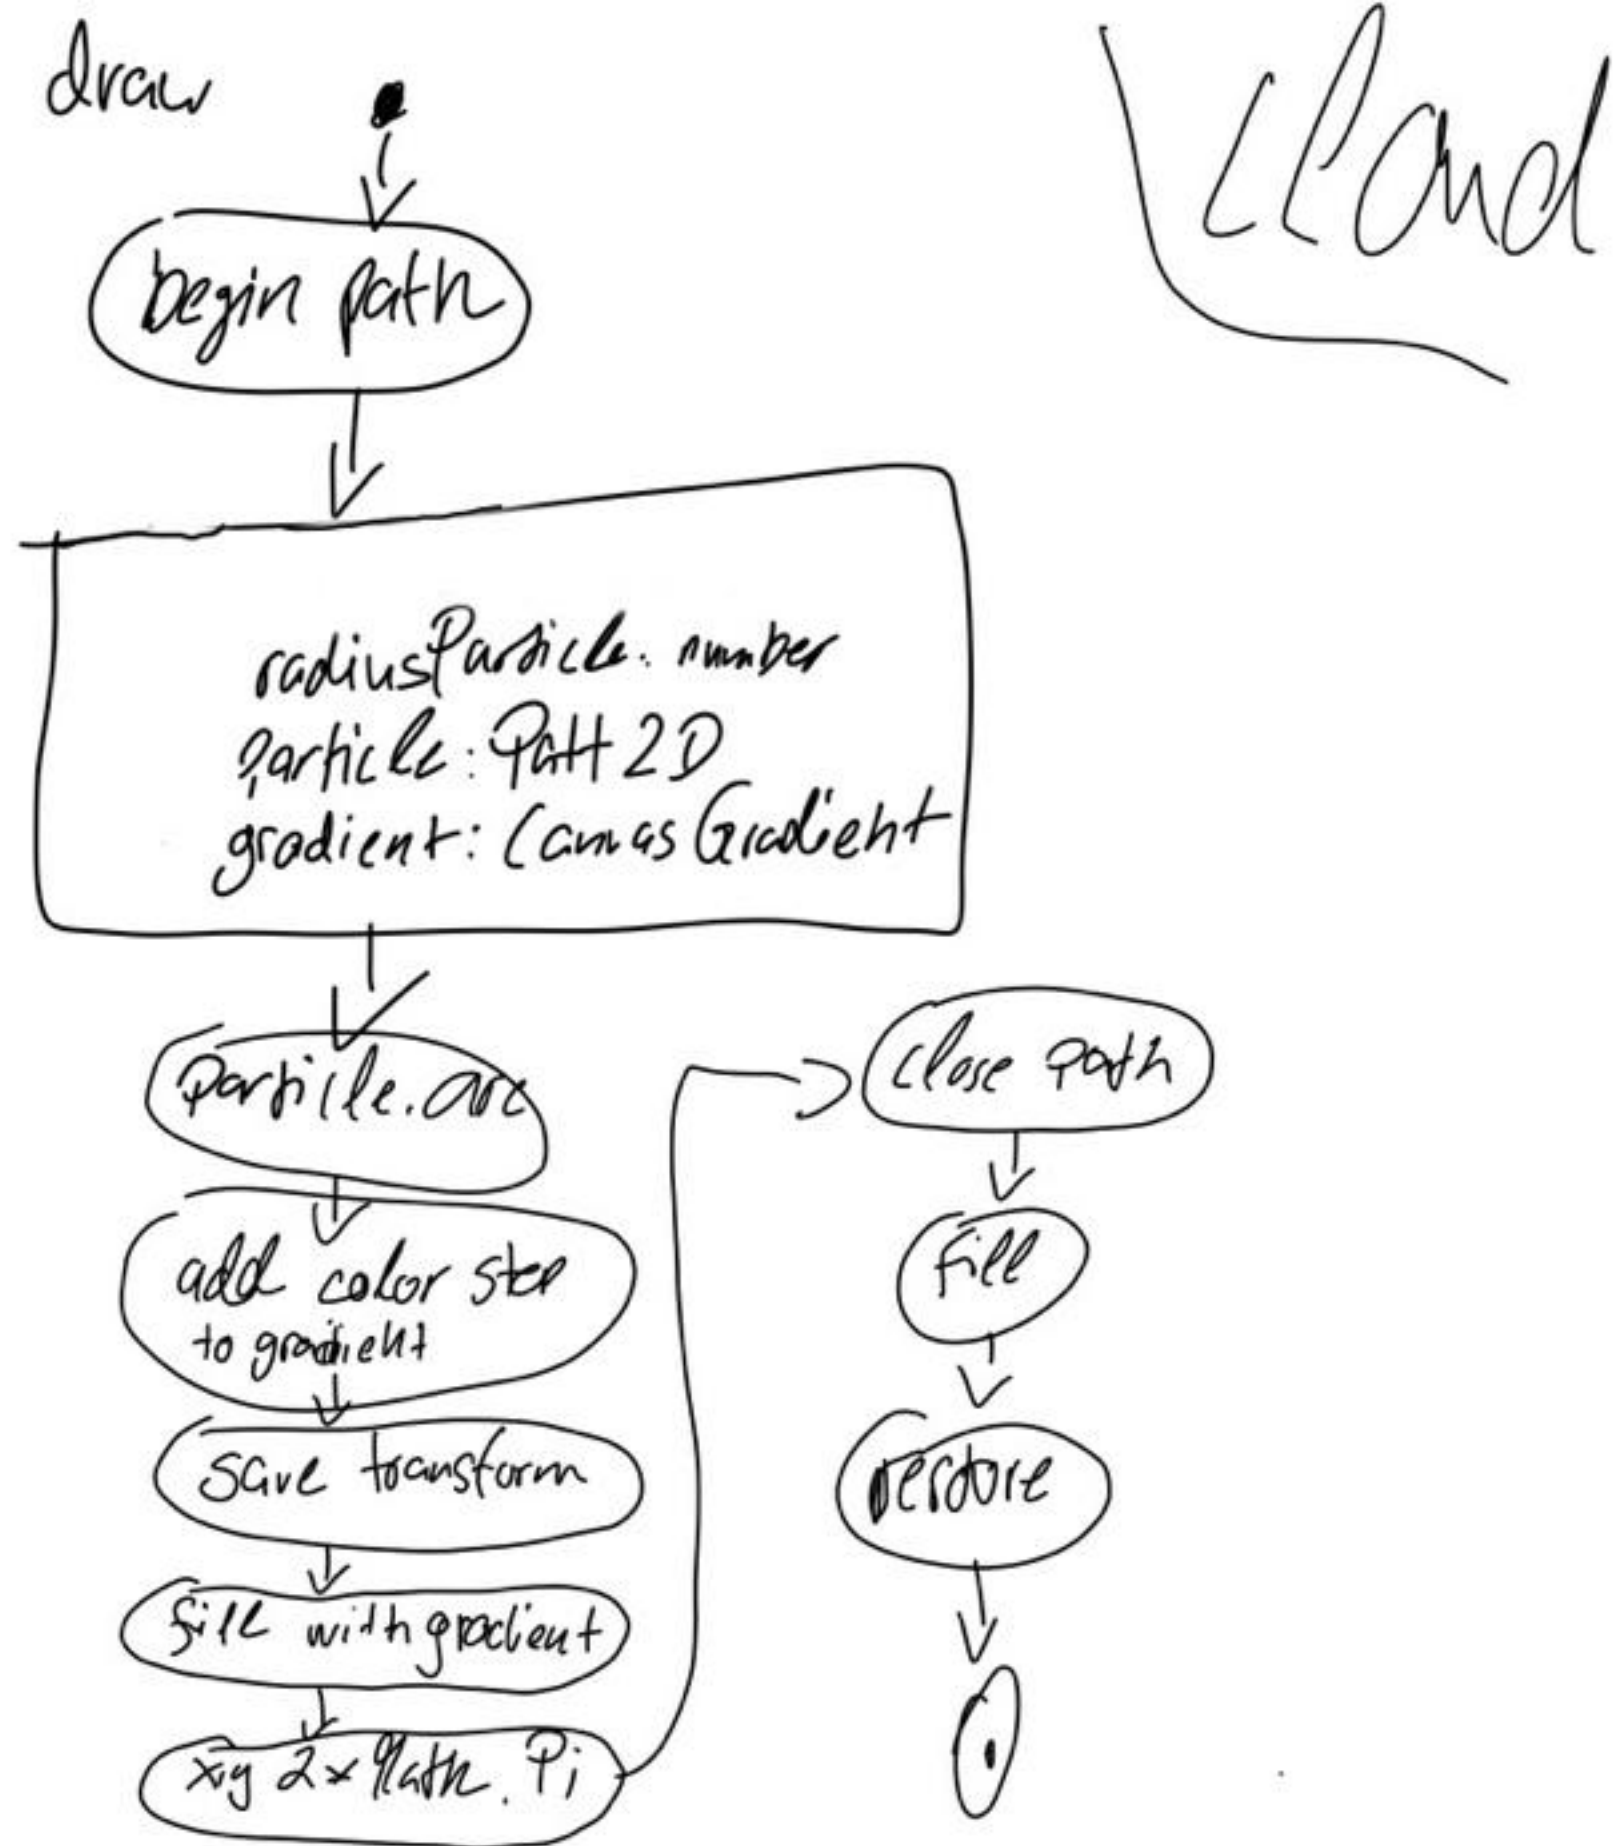 draw
cloud
begin path
radiusParticle: number
particle: Path 2D
gradient: CanvasGradient
Particle.arc
add color step
to gradient
save transform
fill with gradient
x,y 2x Math. Pi
close Path
fill
restore